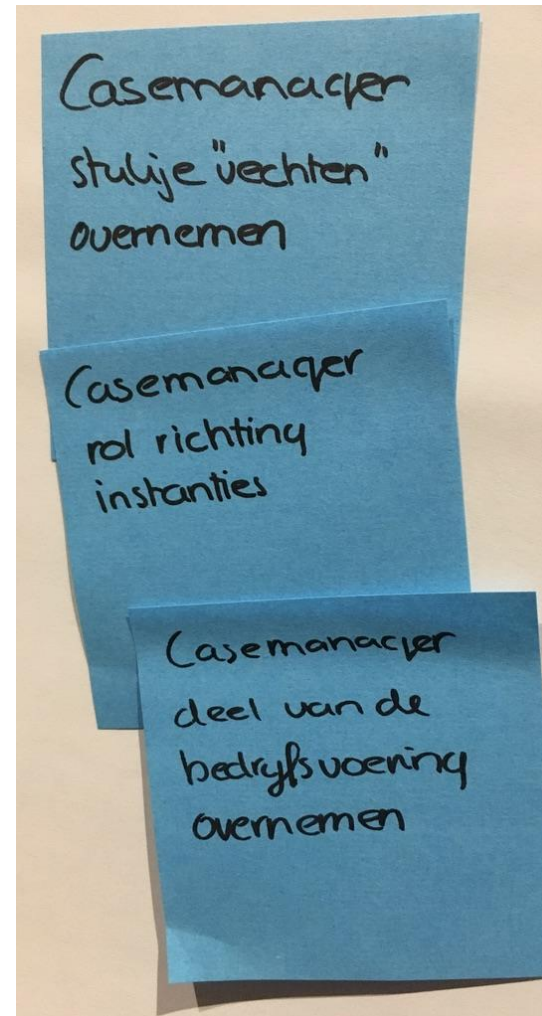 Casemanager
stukje "vechten"
overnemen
Casemanager
rol richting
instanties
Casemanager
deel van de
bedrijfsvoering
overnemen